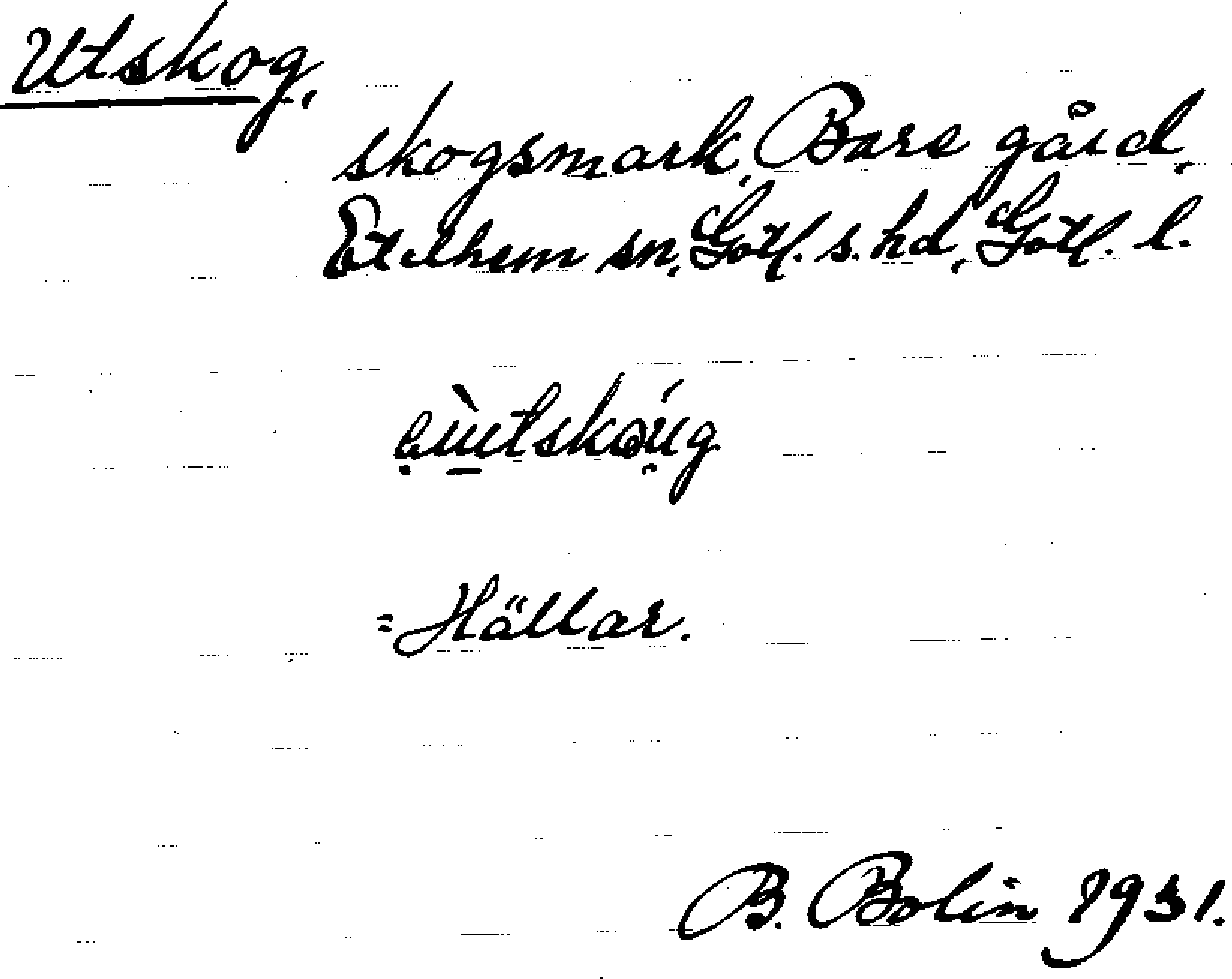 Utskog,
skogsmark, Bare gård,
Etelhem sn, Gotl. s. hd, Gotl. l.
= Hällar.
B. Bolin 1931.